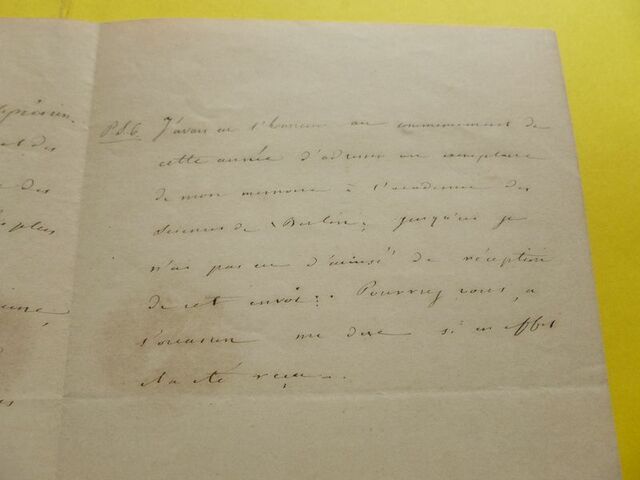 J'avais eu l'honneur au commencement de
cette année d'adresser un exemplaire
de mon memoire à l'académie des
sciences de Berlin, jusqu'ici je
n'ai pas eu d'avis de réception
de cet envoi. Pourriez vous, a
l'occasion me dire si en effet
il a été reçu.
des
des
plus